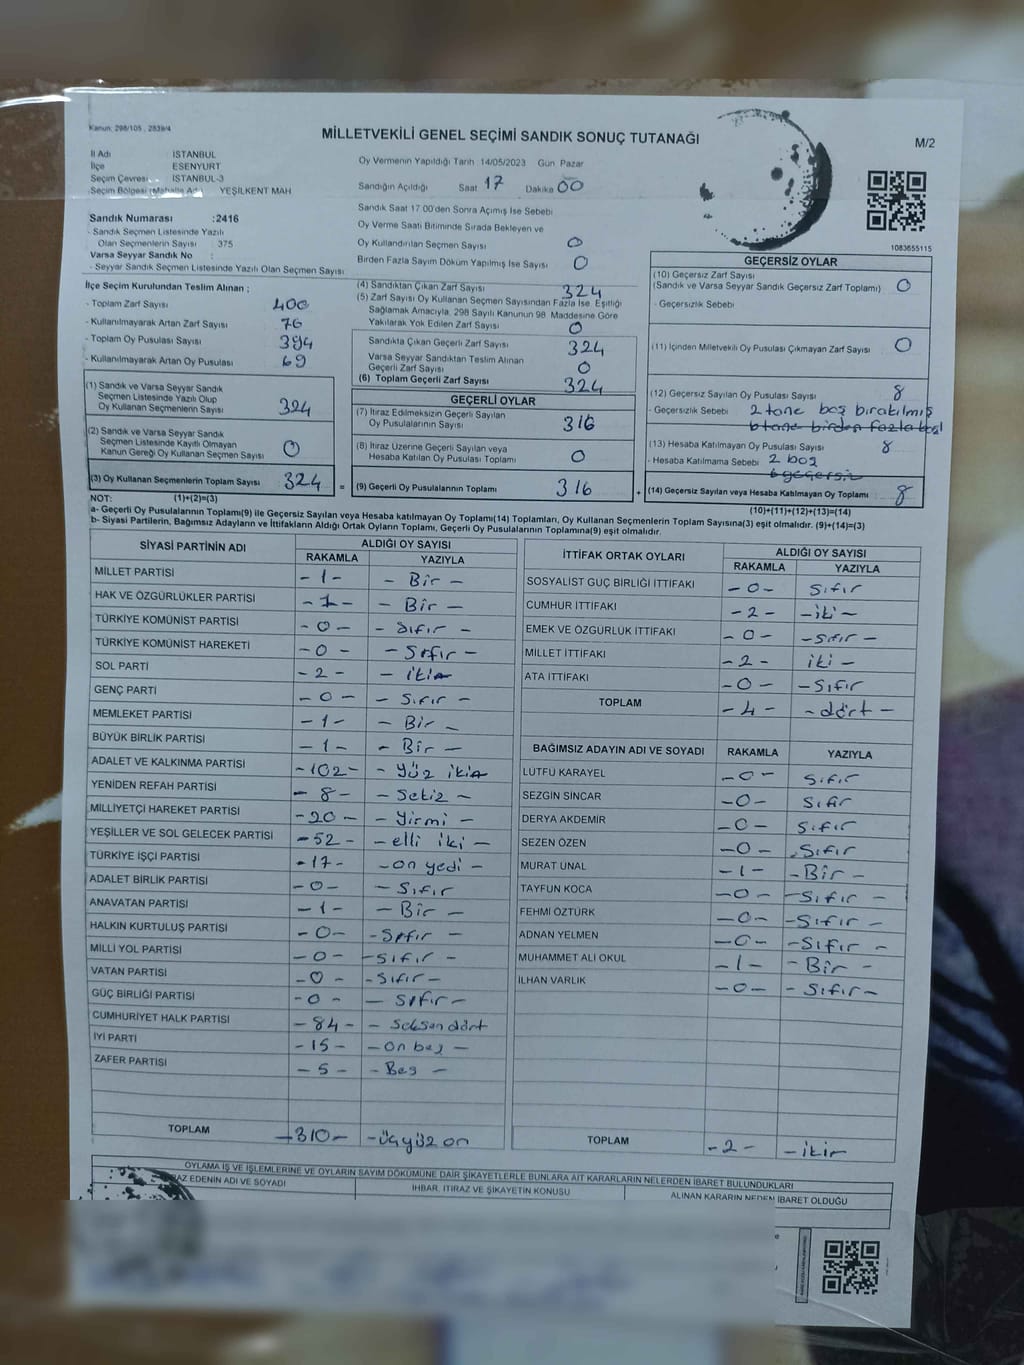 Kanun: 298/105 , 2839/4
MİLLETVEKİLİ GENEL SEÇİMİ SANDIK SONUÇ TUTANAĞI
M/2
İl Adı İSTANBUL
İlçe ESENYURT
Seçim Çevresi İSTANBUL-3
Seçim Bölgesi (Mahalle Adı) YEŞİLKENT MAH
Oy Vermenin Yapıldığı Tarih 14/05/2023 Gün Pazar
Sandığın Açıldığı Saat 17 Dakika 00
Sandık Saat 17:00'den Sonra Açımış İse Sebebi
Sandık Numarası :2416
- Sandık Seçmen Listesinde Yazılı
Olan Seçmenlerin Sayısı : 375
Varsa Seyyar Sandık No :
- Seyyar Sandık Seçmen Listesinde Yazılı Olan Seçmen Sayısı
Oy Verme Saati Bitiminde Sırada Bekleyen ve
Oy Kullandırılan Seçmen Sayısı 0
Birden Fazla Sayım Döküm Yapılmış İse Sayısı 0
1083655115
İlçe Seçim Kurulundan Teslim Alınan ;
- Toplam Zarf Sayısı 400
- Kullanılmayarak Artan Zarf Sayısı 76
- Toplam Oy Pusulası Sayısı 394
- Kullanılmayarak Artan Oy Pusulası 69
(1) Sandık ve Varsa Seyyar Sandık
Seçmen Listesinde Yazılı Olup
Oy Kullanan Seçmenlerin Sayısı 324
(2) Sandık ve Varsa Seyyar Sandık
Seçmen Listesinde Kayıtlı Olmayan
Kanun Gereği Oy Kullanan Seçmen Sayısı 0
(3) Oy Kullanan Seçmenlerin Toplam Sayısı 324 =
(4) Sandıktan Çıkan Zarf Sayısı 324
(5) Zarf Sayısı Oy Kullanan Seçmen Sayısından Fazla İse, Eşitliği
Sağlamak Amacıyla, 298 Sayılı Kanunun 98. Maddesine Göre
Yakılarak Yok Edilen Zarf Sayısı 0
Sandıkta Çıkan Geçerli Zarf Sayısı 324
Varsa Seyyar Sandıktan Teslim Alınan
Geçerli Zarf Sayısı 0
(6) Toplam Geçerli Zarf Sayısı 324
GEÇERLİ OYLAR
(7) İtiraz Edilmeksizin Geçerli Sayılan
Oy Pusulalarının Sayısı 316
(8) İtiraz Üzerine Geçerli Sayılan veya
Hesaba Katılan Oy Pusulası Toplamı 0
(9) Geçerli Oy Pusulalarının Toplamı 316 +
GEÇERSİZ OYLAR
(10) Geçersiz Zarf Sayısı
(Sandık ve Varsa Seyyar Sandık Geçersiz Zarf Toplamı) 0
- Geçersizlik Sebebi
(11) İçinden Milletvekili Oy Pusulası Çıkmayan Zarf Sayısı 0
(12) Geçersiz Sayılan Oy Pusulası Sayısı 8
- Geçersizlik Sebebi 2 tane boş bırakılmış
6 tane birden fazla
(13) Hesaba Katılmayan Oy Pusulası Sayısı 8
- Hesaba Katılmama Sebebi 2 boş
6 geçersiz
(14) Geçersiz Sayılan veya Hesaba Katılmayan Oy Toplamı 8
NOT: (1)+(2)=(3)
(10)+(11)+(12)+(13)=(14)
a- Geçerli Oy Pusulalarının Toplamı(9) ile Geçersiz Sayılan veya Hesaba katılmayan Oy Toplamı(14) Toplamları, Oy Kullanan Seçmenlerin Toplam Sayısına(3) eşit olmalıdır. (9)+(14)=(3)
b- Siyasi Partilerin, Bağımsız Adayların ve İttifakların Aldığı Ortak Oyların Toplamı, Geçerli Oy Pusulalarının Toplamına(9) eşit olmalıdır.
SİYASİ PARTİNİN ADI ALDIĞI OY SAYISI
RAKAMLA YAZIYLA
MİLLET PARTİSİ - 1 - - Bir -
HAK VE ÖZGÜRLÜKLER PARTİSİ - 1 - - Bir -
TÜRKİYE KOMÜNİST PARTİSİ - 0 - - Sıfır -
TÜRKİYE KOMÜNİST HAREKETİ - 0 - - Sıfır -
SOL PARTİ - 2 - - iki -
GENÇ PARTİ - 0 - - Sıfır -
MEMLEKET PARTİSİ - 1 - - Bir -
BÜYÜK BİRLİK PARTİSİ - 1 - - Bir -
ADALET VE KALKINMA PARTİSİ - 102 - - yüz iki -
YENİDEN REFAH PARTİSİ - 8 - - Sekiz -
MİLLİYETÇİ HAREKET PARTİSİ - 20 - - yirmi -
YEŞİLLER VE SOL GELECEK PARTİSİ - 52 - - elli iki -
TÜRKİYE İŞÇİ PARTİSİ - 17 - - on yedi -
ADALET BİRLİK PARTİSİ - 0 - - Sıfır
ANAVATAN PARTİSİ - 1 - - Bir -
HALKIN KURTULUŞ PARTİSİ - 0 - - Sıfır -
MİLLİ YOL PARTİSİ - 0 - - Sıfır -
VATAN PARTİSİ - 0 - - Sıfır -
GÜÇ BİRLİĞİ PARTİSİ - 0 - - Sıfır -
CUMHURİYET HALK PARTİSİ - 84 - - Seksen dört
İYİ PARTİ - 15 - - on beş -
ZAFER PARTİSİ - 5 - - Beş -
TOPLAM - 310 - - üçyüz on
İTTİFAK ORTAK OYLARI ALDIĞI OY SAYISI
RAKAMLA YAZIYLA
SOSYALİST GÜÇ BİRLİĞİ İTTİFAKI - 0 - Sıfır
CUMHUR İTTİFAKI - 2 - - iki -
EMEK VE ÖZGÜRLÜK İTTİFAKI - 0 - - Sıfır -
MİLLET İTTİFAKI - 2 - iki -
ATA İTTİFAKI - 0 - - Sıfır
TOPLAM - 4 - - dört -
BAĞIMSIZ ADAYIN ADI VE SOYADI RAKAMLA YAZIYLA
LÜTFÜ KARAYEL - 0 - Sıfır
SEZGİN SİNCAR - 0 - Sıfır
DERYA AKDEMİR - 0 - Sıfır
SEZEN ÖZEN - 0 - Sıfır
MURAT ÜNAL - 1 - - Bir -
TAYFUN KOCA - 0 - - Sıfır -
FEHMİ ÖZTÜRK - 0 - - Sıfır -
ADNAN YELMEN - 0 - - Sıfır -
MUHAMMET ALİ OKUL - 1 - - Bir -
İLHAN VARLIK - 0 - - Sıfır -
TOPLAM - 2 - - iki
OYLAMA İŞ VE İŞLEMLERİNE VE OYLARIN SAYIM DÖKÜMÜNE DAİR ŞİKAYETLERLE BUNLARA AİT KARARLARIN NELERDEN İBARET BULUNDUKLARI
AZ EDENİN ADI VE SOYADI İHBAR, İTİRAZ VE ŞİKAYETİN KONUSU ALINAN KARARIN NEDEN İBARET OLDUĞU